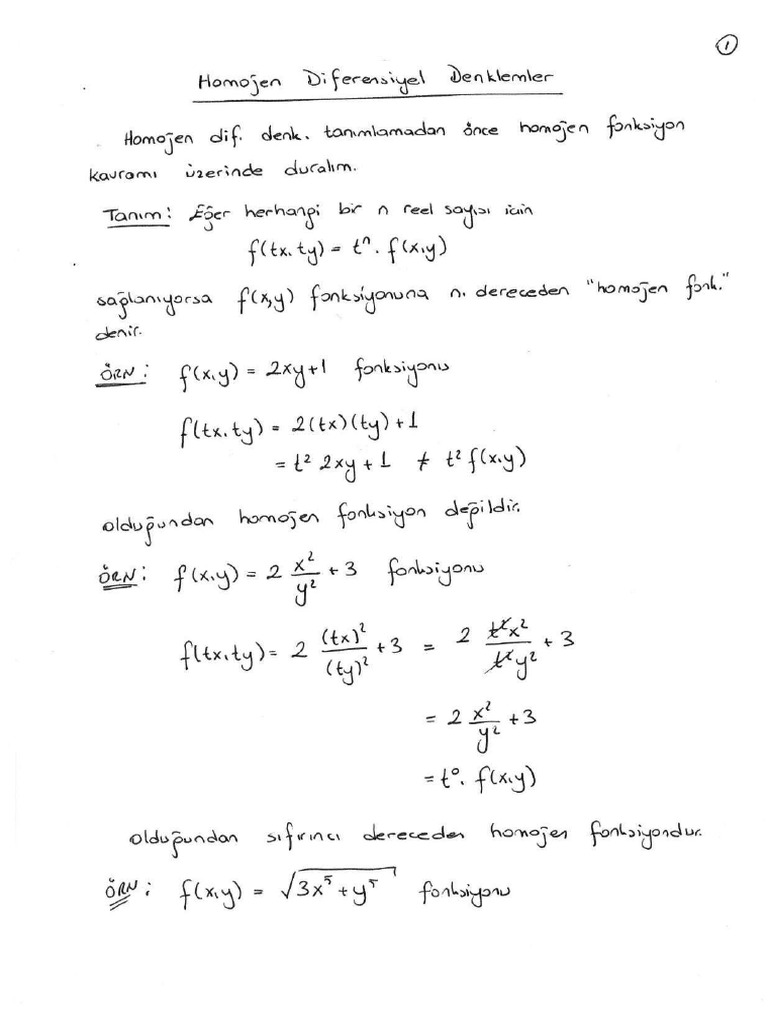 1
Homojen Diferensiyel Denklemler
Homojen dif. denk. tanımlamadan önce homojen fonksiyon
kavramı üzerinde duralım.
Tanım: Eğer herhangi bir n reel sayısı için
f(tx,ty) = tⁿ. f(x,y)
sağlanıyorsa f(x,y) fonksiyonuna n. dereceden "homojen fonk."
denir.
ÖRN: f(x,y) = 2xy+1 fonksiyonu
f(tx,ty) = 2(tx)(ty)+1
= t² 2xy+1 ≠ t² f(x,y)
olduğundan homojen fonksiyon değildir.
ÖRN: f(x,y) = 2 x²/y² + 3 fonksiyonu
f(tx,ty) = 2 (tx)²/(ty)² + 3 = 2 t²x²/t²y² + 3
= 2 x²/y² + 3
= t⁰. f(x,y)
olduğundan sıfırıncı dereceden homojen fonksiyondur.
ÖRN: f(x,y) = √(3x⁵+y⁵) fonksiyonu